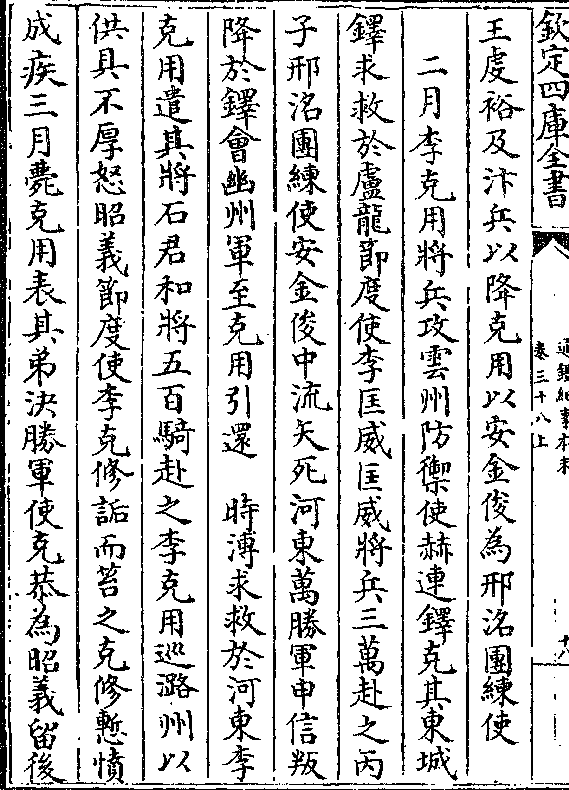 欽定四庫全書
通鑑紀事本末
卷三十八上
十八
王虔裕及汴兵以降克用以安金俊為邢洺團練使
二月李克用將兵攻雲州防禦使赫連鐸克其東城
鐸求救於盧龍節度使李匡威匡威將兵三萬赴之丙
子邢洺團練使安金俊中流矢死河東萬勝軍申信叛
降於鐸會幽州軍至克用引還　時溥求救於河東李
克用遣其將石君和將五百騎赴之李克用巡潞州以
供具不厚怒昭義節度使李克修詬而笞之克修慙憤
成疾三月薨克用表其弟決勝軍使克恭為昭義留後